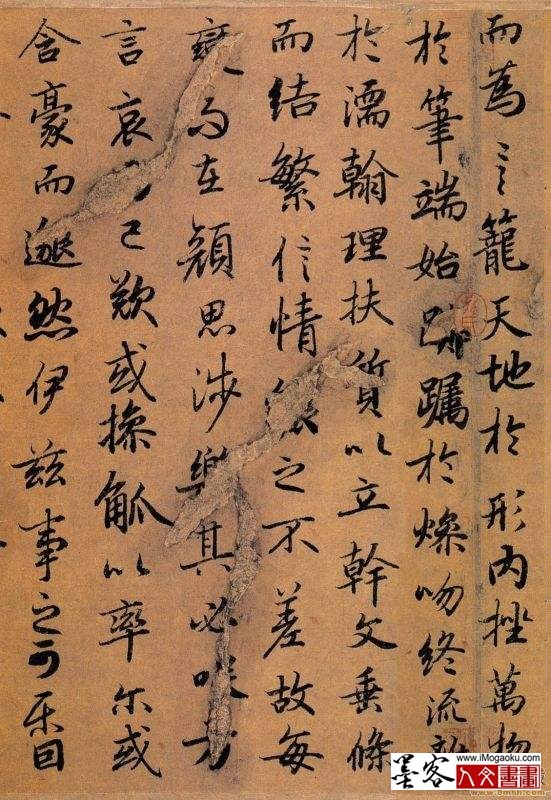 而為言籠天地於形內挫萬物
於筆端始躅於燥吻終流
於濡翰理扶質以立幹文垂條
而結繁信情之不差故每
在顏思涉樂其必方
言哀已歎或操觚以率尔或
含豪而邈然伊茲事之可樂
墨客
www.iMogaoku.com
人文書畫